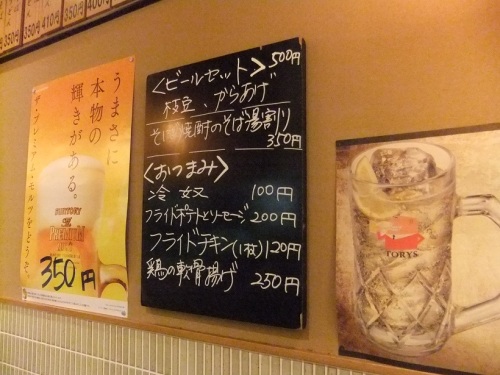 350円
350円
410円
350円
400円
うまさに
本物の
輝きがある。
ザ・プレミアム・モルツをどうぞ。
SUNTORY
The
PREMIUM
MALT'S
350円
<ビールセット> 500円
枝豆、からあげ
そば焼酎のそば湯割り
350円
<おつまみ>
冷奴 100円
フライドポテトとソーセージ 200円
フライドチキン(1枚) 120円
鶏の軟骨揚げ 250円
TORYS